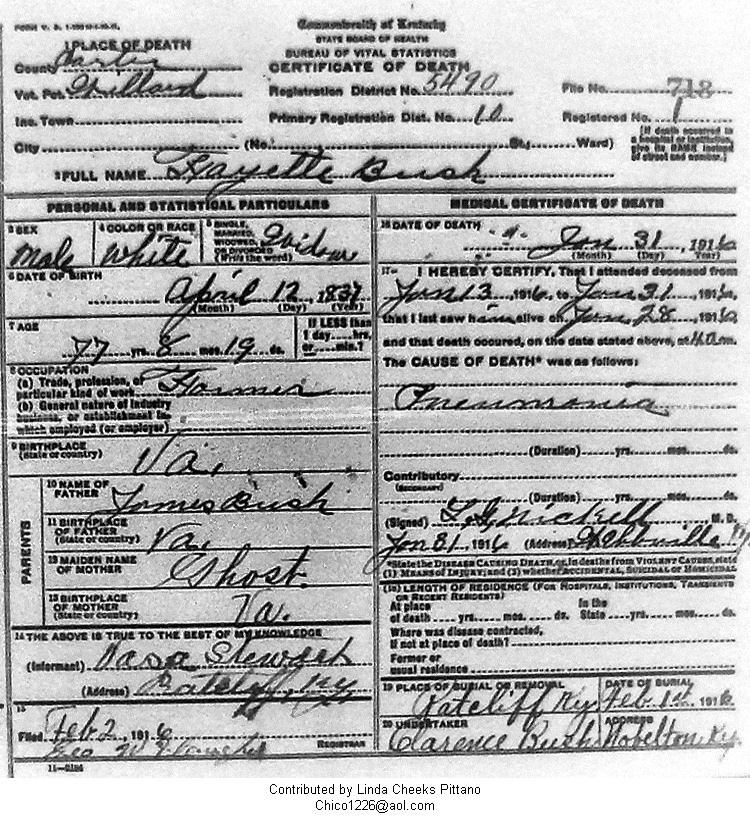 Commonwealth of Kentucky
STATE BOARD OF HEALTH
BUREAU OF VITAL STATISTICS
CERTIFICATE OF DEATH
1 PLACE OF DEATH
County Carter
Vot. Pct. Willard
Inc. Town
City (No. St., Ward)
Registration District No. 5490
Primary Registration Dist. No. 10
File No. 718
Registered No. 1
(If death occurred in a hospital or institution, give its NAME instead of street and number.)
2 FULL NAME Fayette Bush
PERSONAL AND STATISTICAL PARTICULARS
3 SEX Male
4 COLOR OR RACE White
5 SINGLE, MARRIED, WIDOWED, OR DIVORCED (Write the word) Widow
6 DATE OF BIRTH
April 12, 1837
(Month) (Day) (Year)
7 AGE
77 yrs. 8 mos. 19 ds.
If LESS than 1 day hrs. or min.?
8 OCCUPATION
(a) Trade, profession, or particular kind of work Farmer
(b) General nature of industry business, or establishment in which employed (or employer)
9 BIRTHPLACE
(State or country) Va.
PARENTS
10 NAME OF FATHER James Bush
11 BIRTHPLACE OF FATHER (State or country) Va.
12 MAIDEN NAME OF MOTHER Ghost
13 BIRTHPLACE OF MOTHER (State or country) Va.
14 THE ABOVE IS TRUE TO THE BEST OF MY KNOWLEDGE
(Informant)
(Address) Ratcliff, Ky
15
Filed Feb 2, 1916
REGISTRAR
11-3184
MEDICAL CERTIFICATE OF DEATH
16 DATE OF DEATH
Jan 31, 1916
(Month) (Day) (Year)
17 I HEREBY CERTIFY, That I attended deceased from
Jan 13, 1916, to Jan 31, 1916,
that I last saw him alive on Jan 28, 1916,
and that death occured, on the date stated above, at 4 a.m.
The CAUSE OF DEATH* was as follows:
Pneumonia
(Duration) yrs. mos. ds.
Contributory
(SECONDARY)
(Duration) yrs. mos. ds.
(Signed) Nickell M.D.
Jan 31, 1916 (Address)
*State the DISEASE CAUSING DEATH, or, in deaths from VIOLENT CAUSES, state (1) MEANS OF INJURY; and (2) whether ACCIDENTAL, SUICIDAL or HOMICIDAL
(18) LENGTH OF RESIDENCE (FOR HOSPITALS, INSTITUTIONS, TRANSIENTS OR RECENT RESIDENTS)
At place of death yrs. mos. ds. In the State yrs. mos. ds.
Where was disease contracted, if not at place of death?
Former or usual residence
19 PLACE OF BURIAL OR REMOVAL Ratcliff Ky
DATE OF BURIAL Feb 1st 1916
20 UNDERTAKER Clarence Bush
ADDRESS Ky.
Contributed by Linda Cheeks Pittano
Chico1226@aol.com